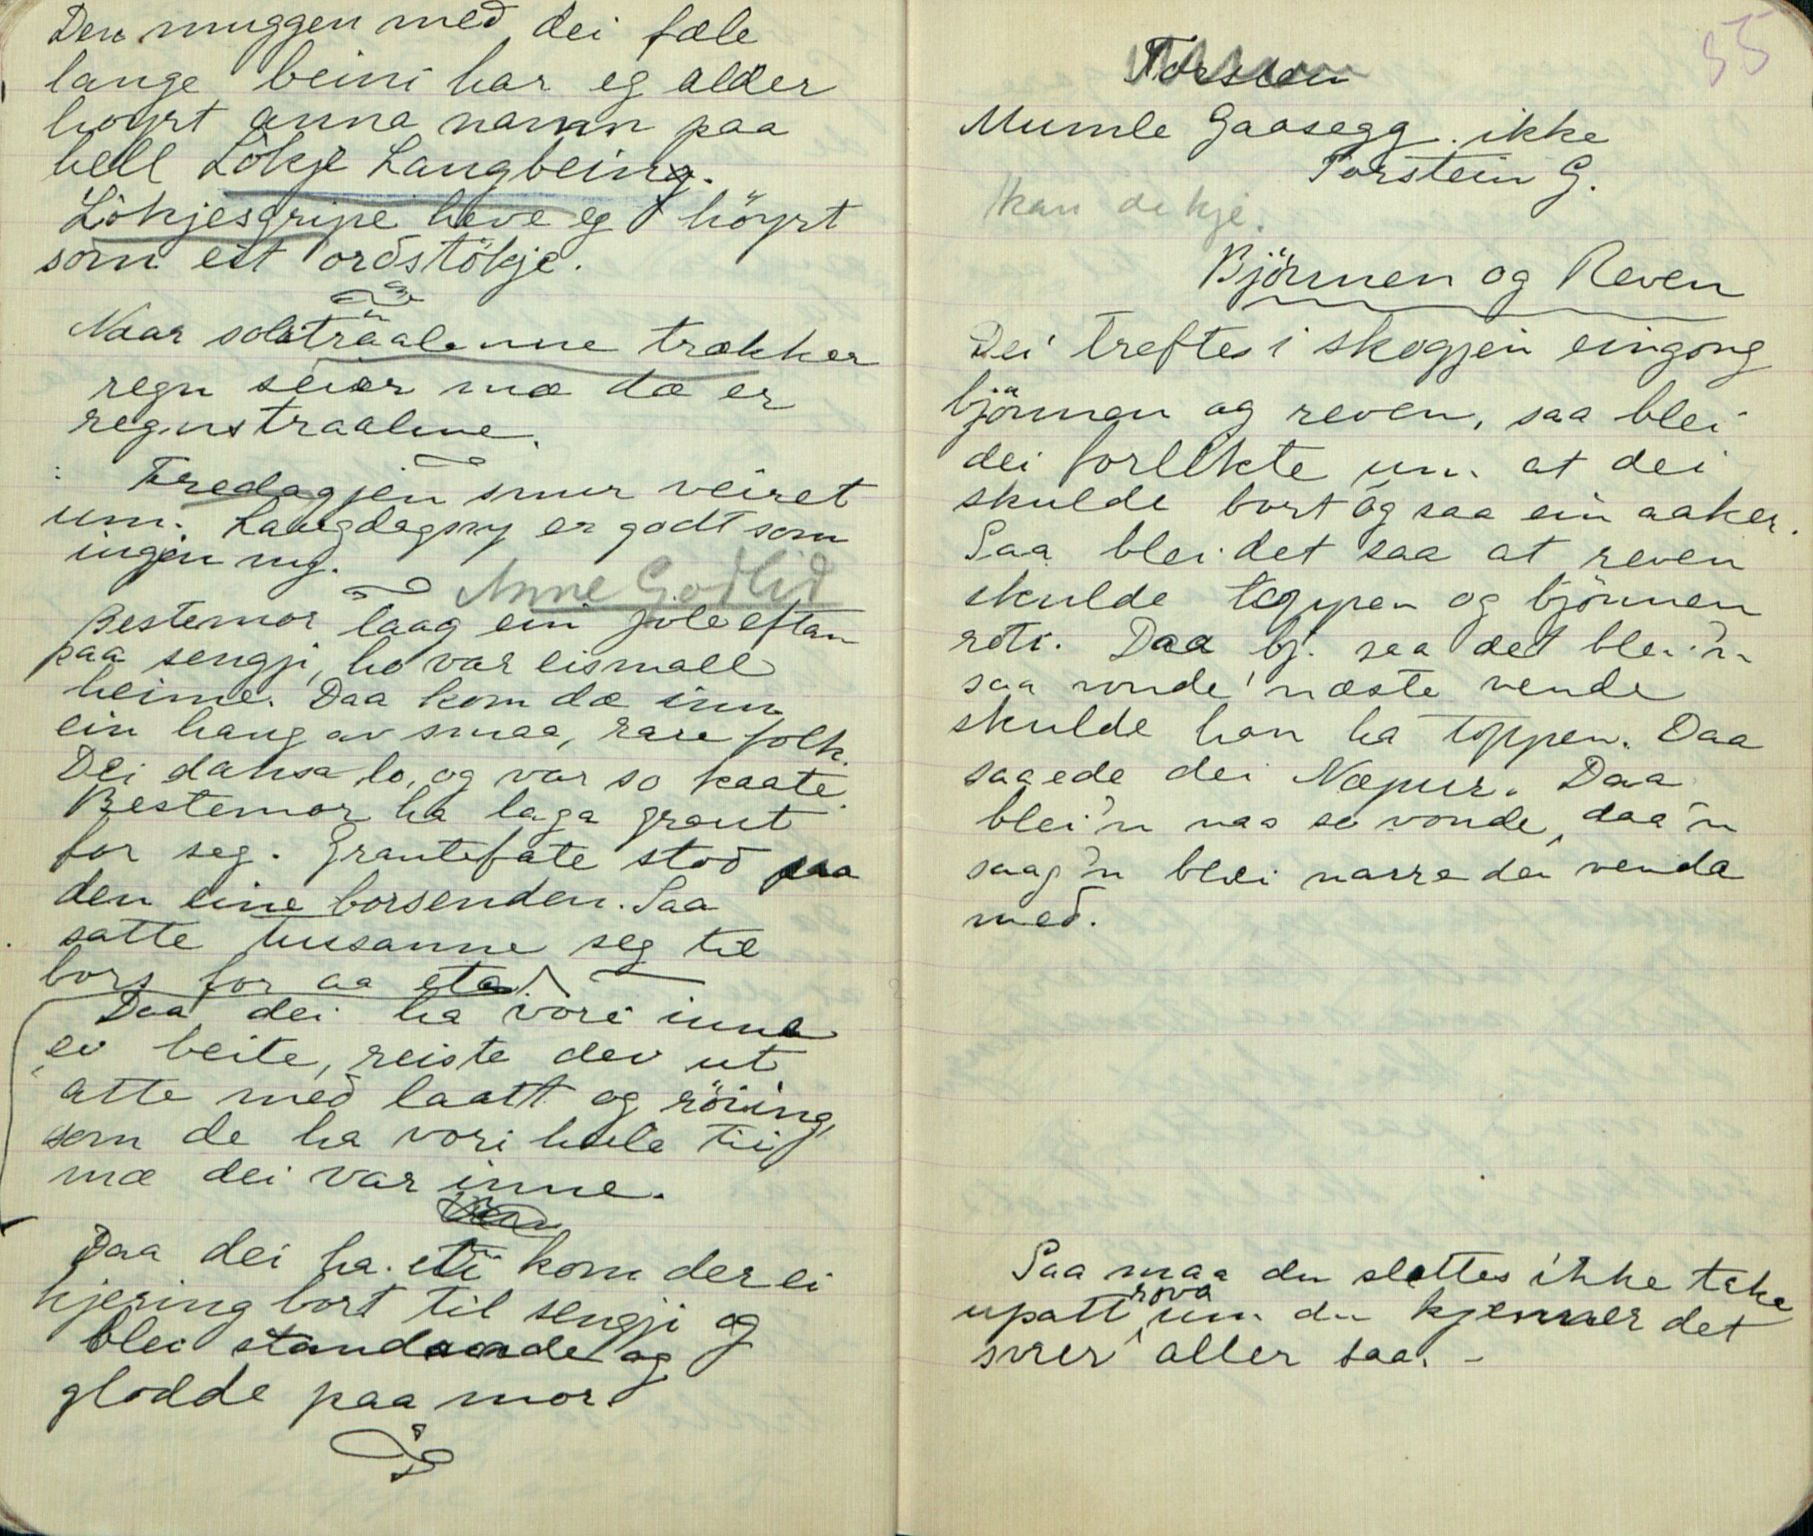 Den muggen med dei fæle
lange beini har eg alder
høyrt anna namn paa
hell Lökje Langbeing.
Lökjesgripe heve eg høyrt
som eit ordstökje.
Naar solstraalenne trækker
regn seier mæ dæ er
regnstraalene.
Fredagjen snur veiret
um. Laugdagsny er godt som
ingjen ny.
Anne Godlid
Bestemor laag ein joleeftan
paa sengji, ho var eismall
heime. Daa kom dæ inn
ein haug av smaa, rare folk.
Dei dansa lo, og var so kaate.
Bestemor ha laga graut
for seg. Grautefate stod paa
den eine borsenden. Saa
satte tusanne seg til
bors for aa eta.
Daa dei ha vori inne
ei beite, reiste dei ut
atte med laatt og röiing,
som de ha vori hele tii
mæ dei var inne.
Daa dei ha eti kom der ei
kjering bort til sengji og
blei standande og
glodde paa mor.
85
Torstein
Mumle Gaasegg. ikke
Torstein G.
kan de kje.
Björnen og Reven
Dei treftes i skogjen eingong
björnen og reven, saa blei
dei forlikte um at dei
skulde bort og saa ein aaker.
Saa blei det saa at reven
skulde toppen og björnen
roti. Daa bj. saa det blei'n
saa vonde' næste vende
skulde han ha toppen. Daa
saaede dei Næpur. Daa
blei'n naa so vonde, daa'n
saag'n blei narra dei venda
med.
Saa maa du slettes ikke take
upatt rova um du kjenner det
svier aller saa. -